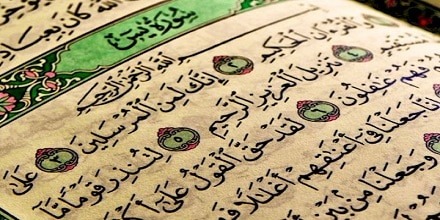 ٱللَّهَ كَانَ
سُورَةُ يسٓ
بِسْمِ ٱللَّهِ ٱلرَّحْمَٰنِ ٱلرَّحِيمِ
وَٱلْقُرْءَانِ ٱلْحَكِيمِ ٢ إِنَّكَ لَمِنَ ٱلْمُرْسَلِينَ ٣ عَلَىٰ
تَنزِيلَ ٱلْعَزِيزِ ٱلرَّحِيمِ ٥ لِتُنذِرَ قَوْمًا مَّآ
فَهُمْ غَٰفِلُونَ ٦ لَقَدْ حَقَّ ٱلْقَوْلُ عَلَىٰٓ
إِنَّا جَعَلْنَا فِىٓ أَعْنَٰقِهِمْ أَغْلَٰلًا
وَجَعَلْنَا مِنۢ بَيْنِ